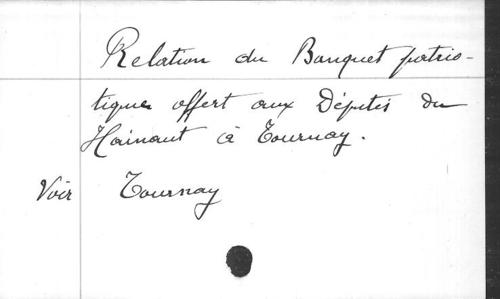 Relation du Banquet patrio-
tique offert aux Députés du
Hainaut à Tournay.
Voir Tournay